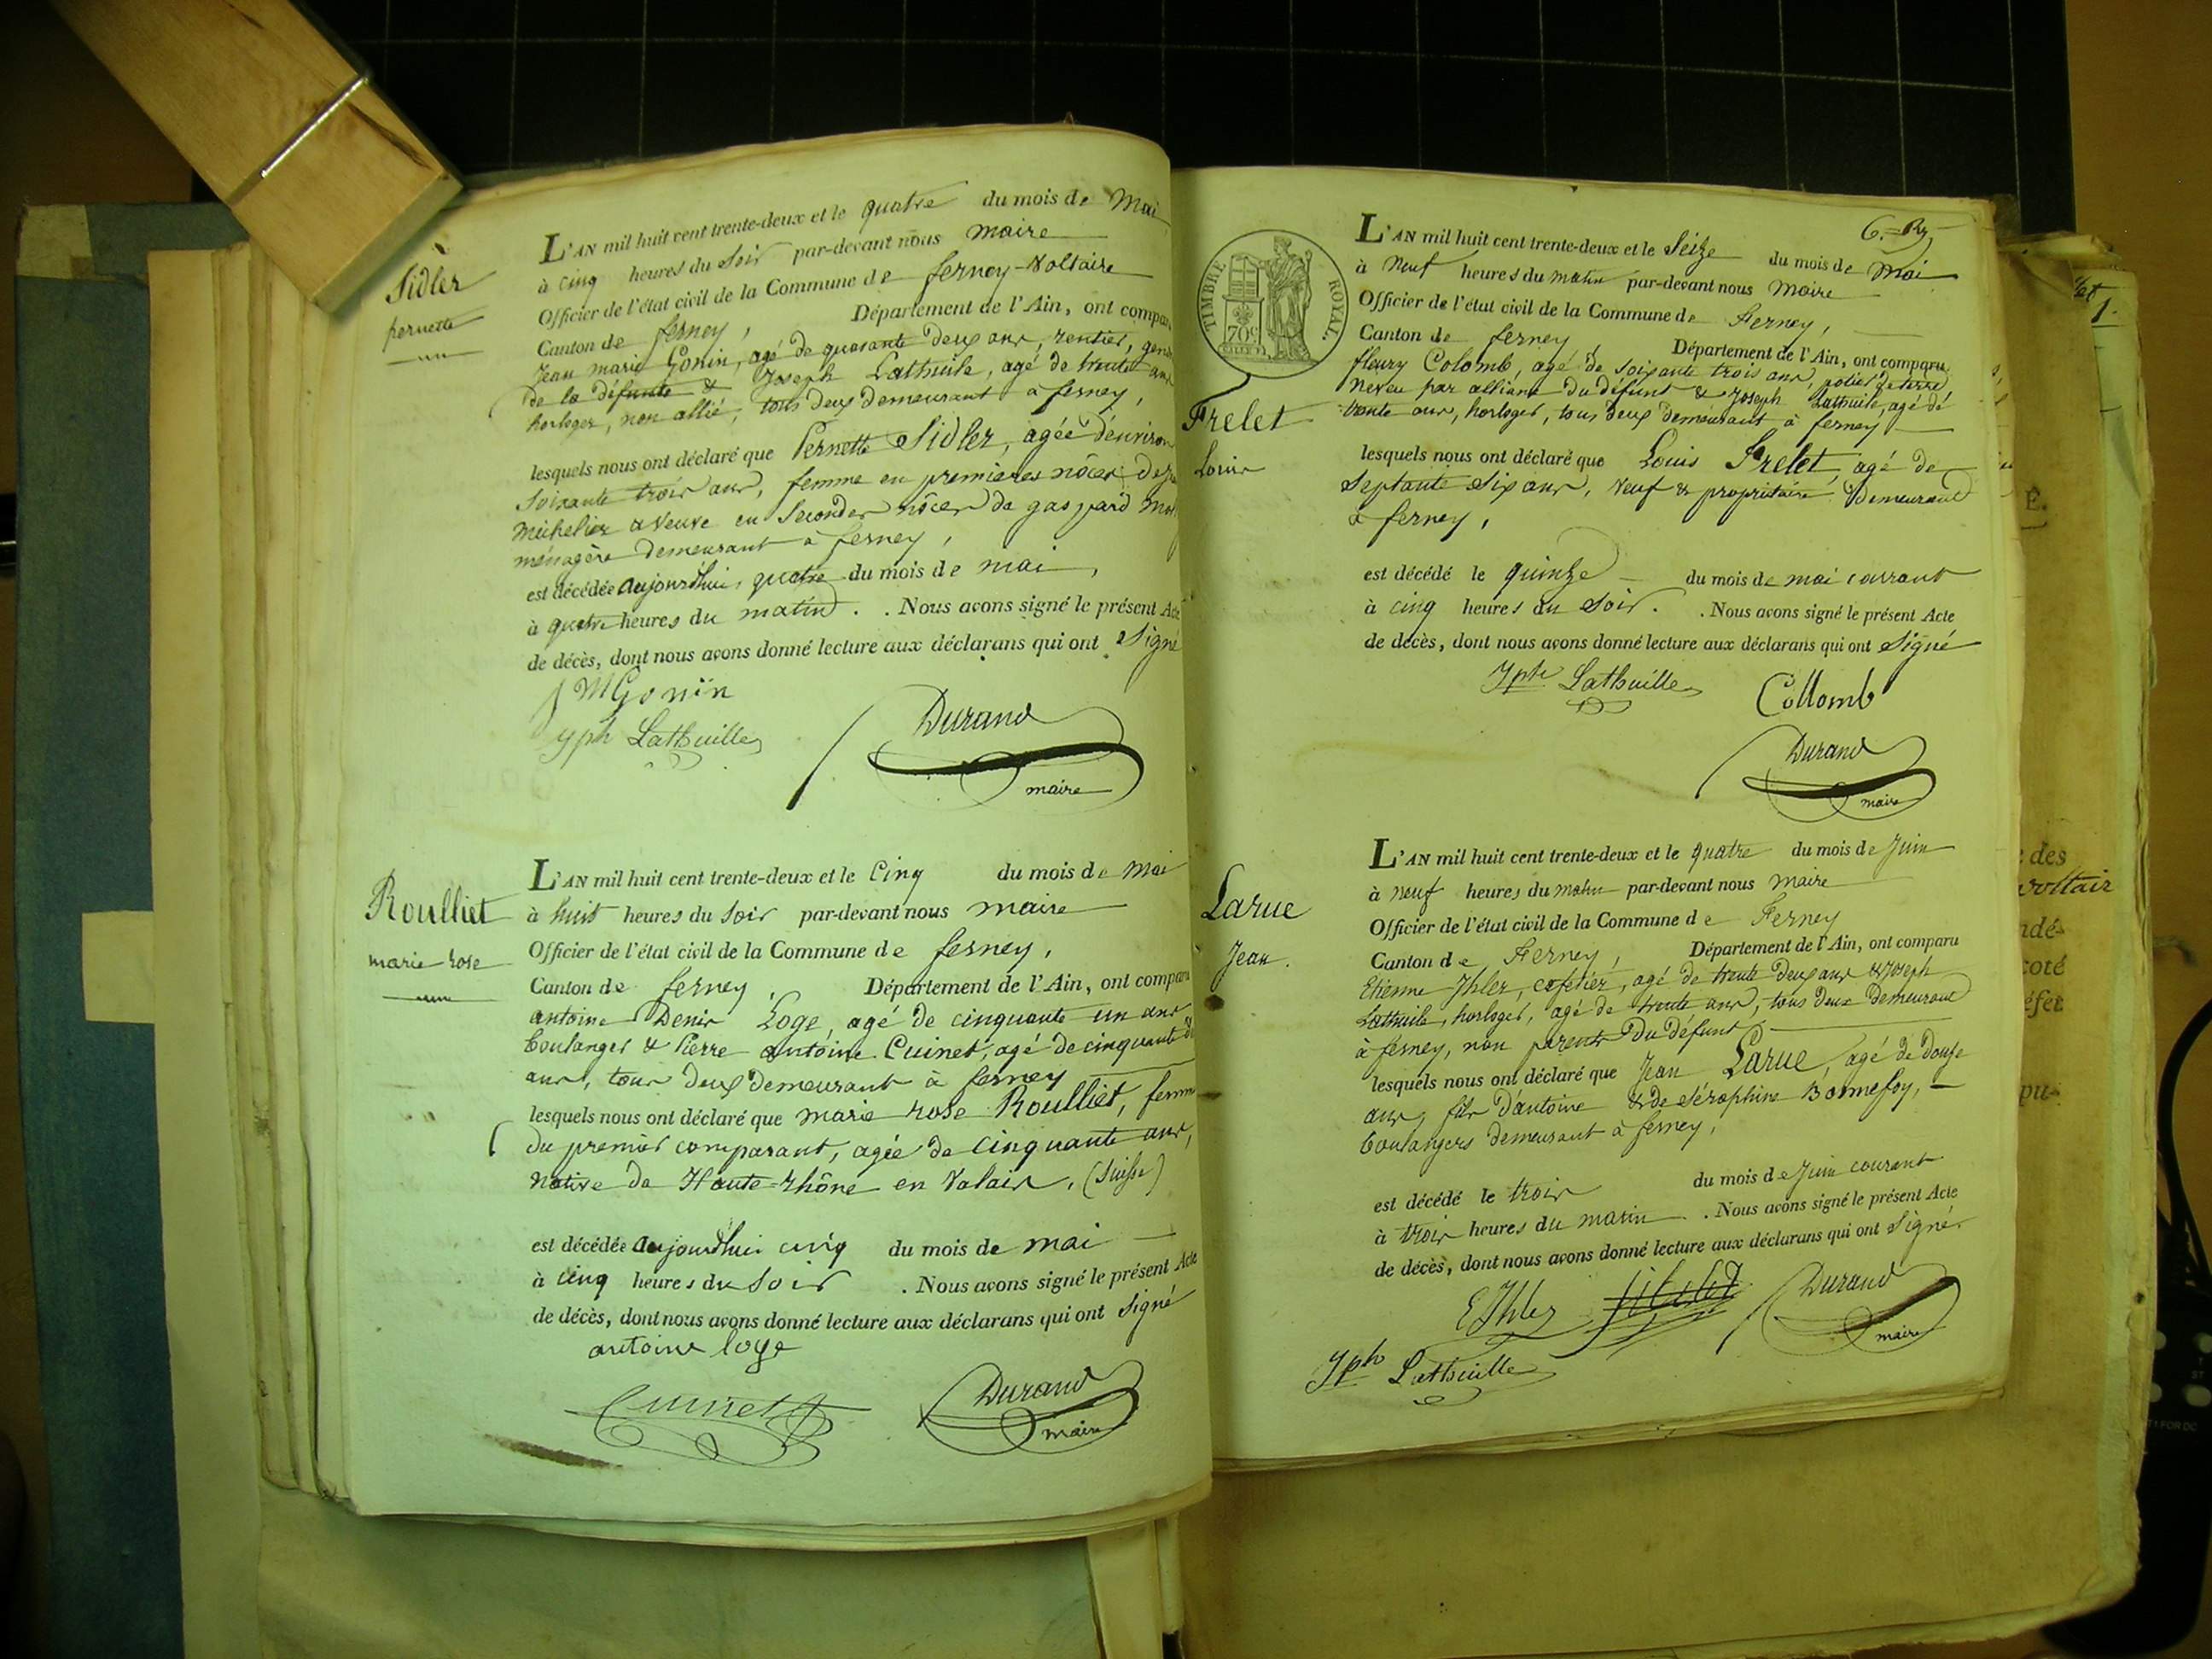 Sidler
pernette
L'AN mil huit cent trente-deux et le quatre du mois de Mai
à cinq heures du soir par-devant nous maire
Officier de l'état civil de la Commune de ferney-Voltaire
Canton de ferney, Département de l'Ain, ont compar
Jean marie Gonin, agé de quarante deux ans, rentier, gend
de la défunte & Joseph Lathuile, agé de trente ans
horloger, non allié, tous deux demeurant à ferney,
lesquels nous ont déclaré que Pernette Sidler, agée d'environ
soixante trois ans, femme en premieres nôces de
Michelier & Veuve en secondes nôces de gaspard
ménagère demeurant à ferney,
est décédée aujourdhui, quatre du mois de mai,
à quatre heures du matin. . Nous avons signé le présent Acte
de décès, dont nous avons donné lecture aux déclarans qui ont signé
J M Gonin
Jph Lathuille
Durand
maire
Roulliet
marie rose
L'AN mil huit cent trente-deux et le Cinq du mois de Mai
à huit heures du soir par-devant nous maire
Officier de l'état civil de la Commune de ferney,
Canton de ferney, Département de l'Ain, ont comparu
antoine Denis Loge, agé de cinquante un ans
boulanger & Pierre antoine Cuinet, agé de cinquante
ans, tous deux demeurant à ferney
lesquels nous ont déclaré que marie rose Roulliet, femme
du premier comparant, agée de cinquante ans,
native de Haute-rhône en Valais, (Suisse)
est décédée aujourdhui cinq du mois de mai
à cinq heures du soir . Nous avons signé le présent Acte
de décès, dont nous avons donné lecture aux déclarans qui ont signé
antoine loge
Cuinet
Durand
maire
TIMBRE ROYAL.
70c
Frelet
Louis
L'AN mil huit cent trente-deux et le Seize du mois de Mai
à neuf heures du matin par-devant nous Maire
Officier de l'état civil de la Commune de Ferney,
Canton de ferney Département de l'Ain, ont comparu
fleury Colomb, agé de soixante trois ans, potier de terre
neveu par alliance du défunt & Joseph Lathuile, agé de
trente ans, horloger, tous deux demeurant à ferney
lesquels nous ont déclaré que Louis Frelet, agé de
Septante six ans, veuf & propriétaire demeurant
à ferney,
est décédé le quinze du mois de mai courant
à cinq heures du soir. . Nous avons signé le présent Acte
de décès, dont nous avons donné lecture aux déclarans qui ont signé
Jph Lathuille
Collomb
Durand
maire
Larue
Jean.
L'AN mil huit cent trente-deux et le quatre du mois de Juin
à neuf heures du matin par-devant nous maire
Officier de l'état civil de la Commune de Ferney
Canton de Ferney, Département de l'Ain, ont comparu
Etienne Ihler, cafetier, agé de trente deux ans & Joseph
Lathuile, horloger, agé de trente ans, tous deux demeurant
à ferney, non parents du défunt
lesquels nous ont déclaré que Jean Larue, agé de douze
ans, fils d'antoine & de Séraphine Bonnefoy,
boulangers demeurant à ferney,
est décédé le trois du mois de Juin courant
à trois heures du matin . Nous avons signé le présent Acte
de décès, dont nous avons donné lecture aux déclarans qui ont signé
E Ihler
Durand
maire
Jph Lathuille